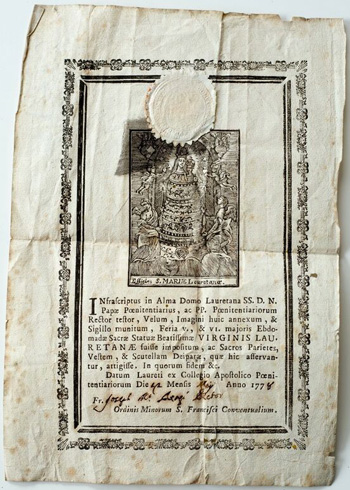 Effigies S. MARIÆ Lauretanæ.
INfrascriptus in Alma Domo Lauretana SS. D. N.
Papæ Pœnitentiarius, ac PP. Pœnitentiariorum
Rector testor, Velum, Imagini huic annexum, &
Sigillo munitum, Feria v., & vi. majoris Ebdo-
madæ Sacræ Statuæ Beatissimæ VIRGINIS LAU-
RETANÆ fuisse impositum, ac Sacros Parietes,
Vestem, & Scutellam Deiparæ, quæ hic asservan-
tur, attigisse. In quorum fidem &c.
Datum Laureti ex Collegio Apostolico Pœni-
tentiariorum Die Mensis Anno 1778
Fr. Joseph
Ordinis Minorum S. Francisci Conventualium.